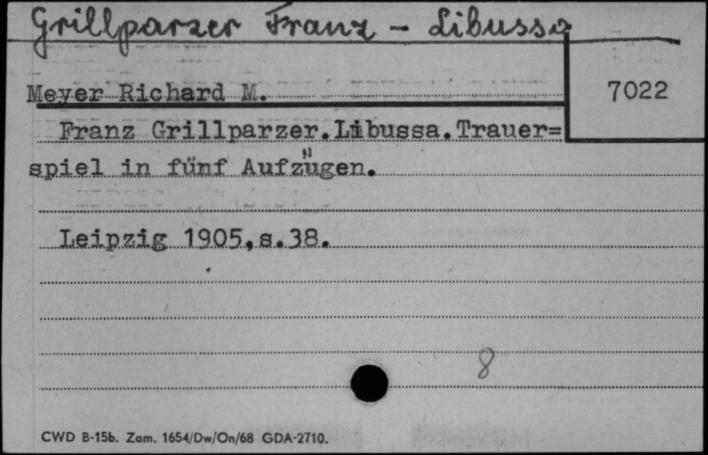 Grillparzer Franz - Libussa
Meyer Richard M.
7022
Franz Grillparzer.Libussa.Trauer=
spiel in fünf Aufzügen.
Leipzig 1905,s.38.
8
CWD B-15b. Zam. 1654/Dw/On/68 GDA-2710.